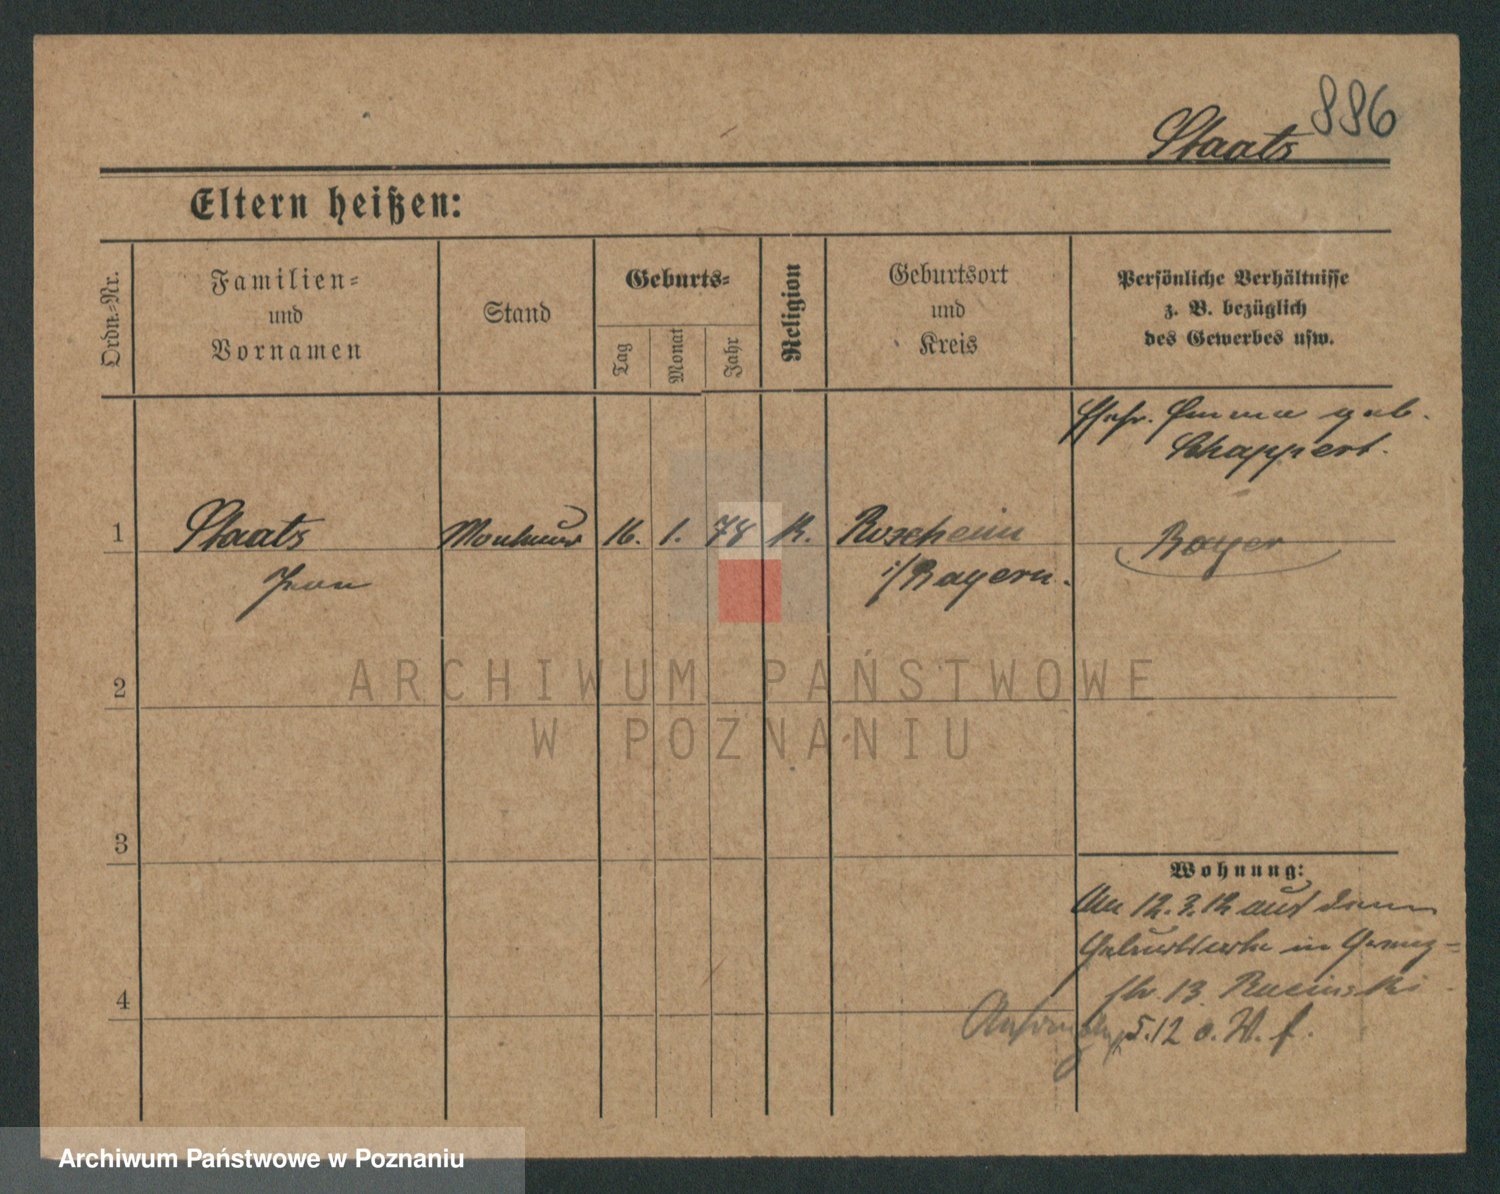 886
Staats
Eltern heißen:
Ordn.-Nr.
Familien-
und
Vornamen
Stand
Geburts-
Tag
Monat
Jahr
Religion
Geburtsort
und
Kreis
Persönliche Verhältnisse
z. B. bezüglich
des Gewerbes usw.
Ehefr. Emma geb.
Schappert.
1
Staats
Monteur
16.
1.
78
K.
Roxheim
Bayer
Jean
i/Bayern.
2
ARCHIWUM PAŃSTWOWE
W POZNANIU
3
Wohnung:
Am 12.3.12 auf dem
in
4
str. 13 Rucinski
5.12 o. W. f.
Archiwum Państwowe w Poznaniu